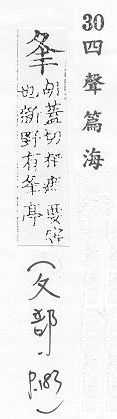 30 四聲篇海
夆
胡蓋切相遮要害
也新野有夆亭
(夂部, P.183)